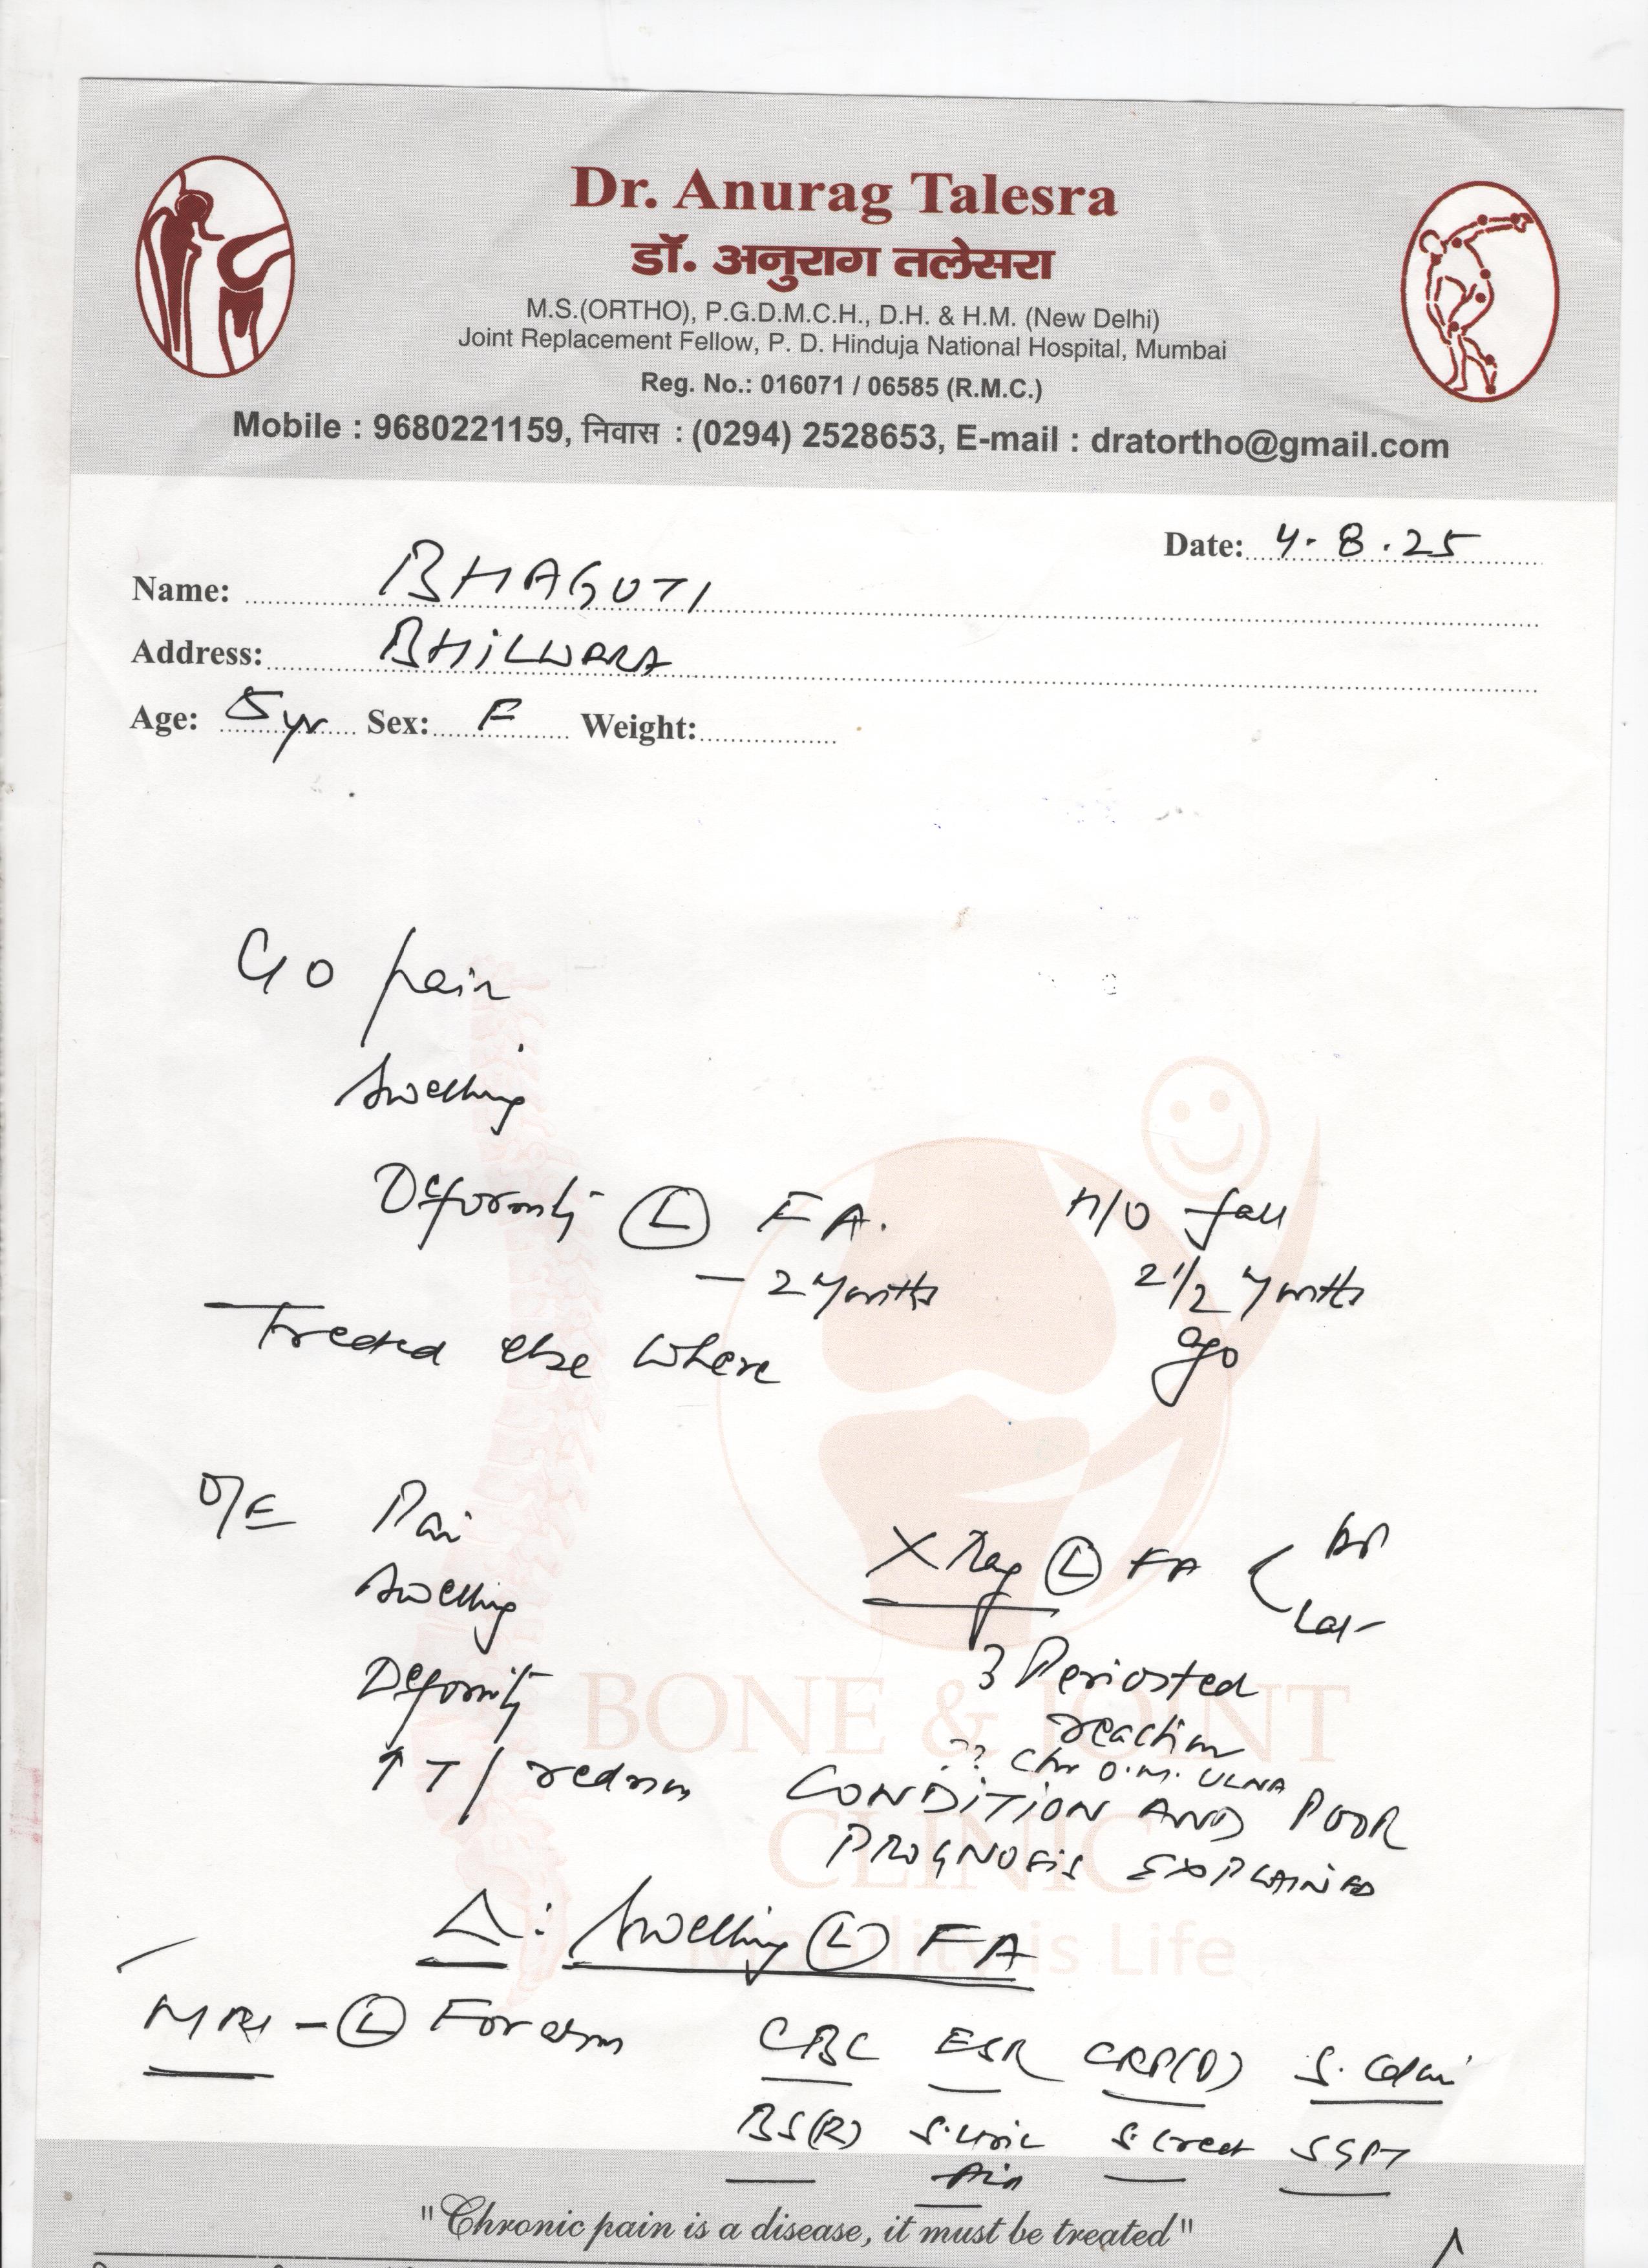 Dr. Anurag Talesra
डॉ. अनुराग तलेसरा
M.S.(ORTHO), P.G.D.M.C.H., D.H. & H.M. (New Delhi)
Joint Replacement Fellow, P. D. Hinduja National Hospital, Mumbai
Reg. No.: 016071 / 06585 (R.M.C.)
Mobile : 9680221159, निवास : (0294) 2528653, E-mail : dratortho@gmail.com
Date: 4.8.25
Name: BHAGUTI
Address: BHILWARA
Age: 5 yr Sex: F Weight:
C/O pain
Swelling
Deformity (L) FA. H/O fall
- 2 months 2 1/2 months
Treated else where ago
O/E Pain
X Ray (L) FA < AP
Swelling Lat
Deformity Periosteal
reaction
↑ T / redness ?? Chr O.M. ULNA
CONDITION AND POOR
PROGNOSIS EXPLAINED
BONE & JOINT
CLINIC
Mobility is Life
Δ: Swelling (L) FA
MRI - (L) Forearm
CBC ESR CRP(Q) S.
BS(R) S. Uric Acid S. Creat SGPT
"Chronic pain is a disease, it must be treated"